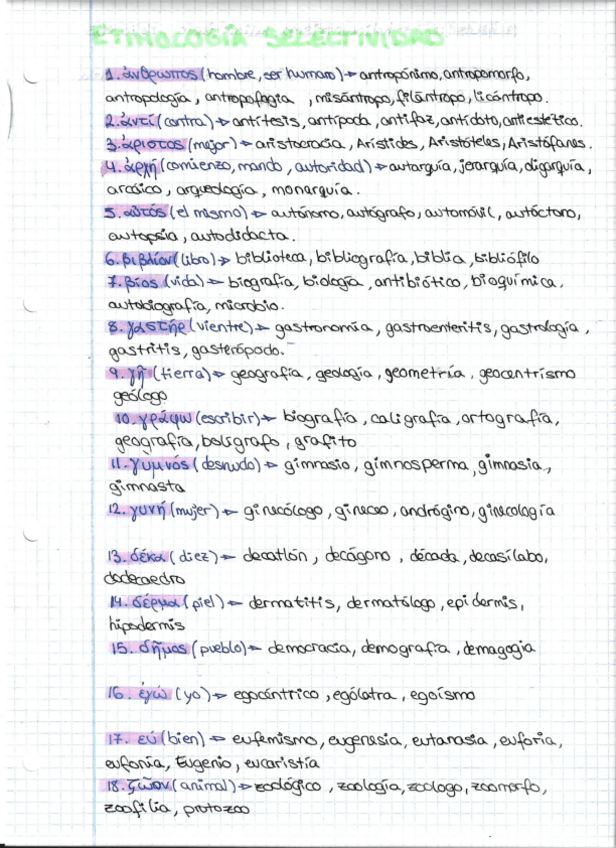 ETIMOLOGÍA SELECTIVIDAD
1. ἄνθρωπος (hombre, ser humano) → antropónimo, antropomorfo,
antropología, antropofagia, misántropo, filántropo, licántropo.
2. ἀντί (contra) → antítesis, antípoda, antifaz, antídoto, antiestético.
3. ἄριστος (mejor) → aristocracia, Arístides, Aristóteles, Aristófanes.
4. ἀρχή (comienzo, mando, autoridad) → autarquía, jerarquía, oligarquía,
arcáico, arqueología, monarquía.
5. αὐτός (el mismo) → autónomo, autógrafo, automóvil, autóctono,
autopsia, autodidacta.
6. βιβλίον (libro) → biblioteca, bibliografía, biblia, bibliófilo
7. βίος (vida) → biografía, biología, antibiótico, bioquímica,
autobiografía, microbio.
8. γαστήρ (vientre) → gastronomía, gastroenteritis, gastrología,
gastritis, gasterópodo.
9. γῆ (tierra) → geografía, geología, geometría, geocentrismo
geólogo
10. γράφω (escribir) → biografía, caligrafía, ortografía,
geografía, bolígrafo, grafito
11. γυμνός (desnudo) → gimnasio, gimnosperma, gimnasia,
gimnasta
12. γυνή (mujer) → ginecólogo, gineceo, andrógino, ginecología
13. δέκα (diez) → decatlón, decágono, década, decasílabo,
dodecaedro
14. δέρμα (piel) → dermatitis, dermatólogo, epidermis,
hipodermis
15. δῆμος (pueblo) → democracia, demografía, demagogia
16. ἐγώ (yo) → egocéntrico, ególatra, egoísmo
17. εὖ (bien) → eufemismo, eugenesia, eutanasia, euforia,
eufonía, Eugenio, eucaristía
18. ζῷον (animal) → zoológico, zoología, zoologo, zoomorfo,
zoofilia, protozoo